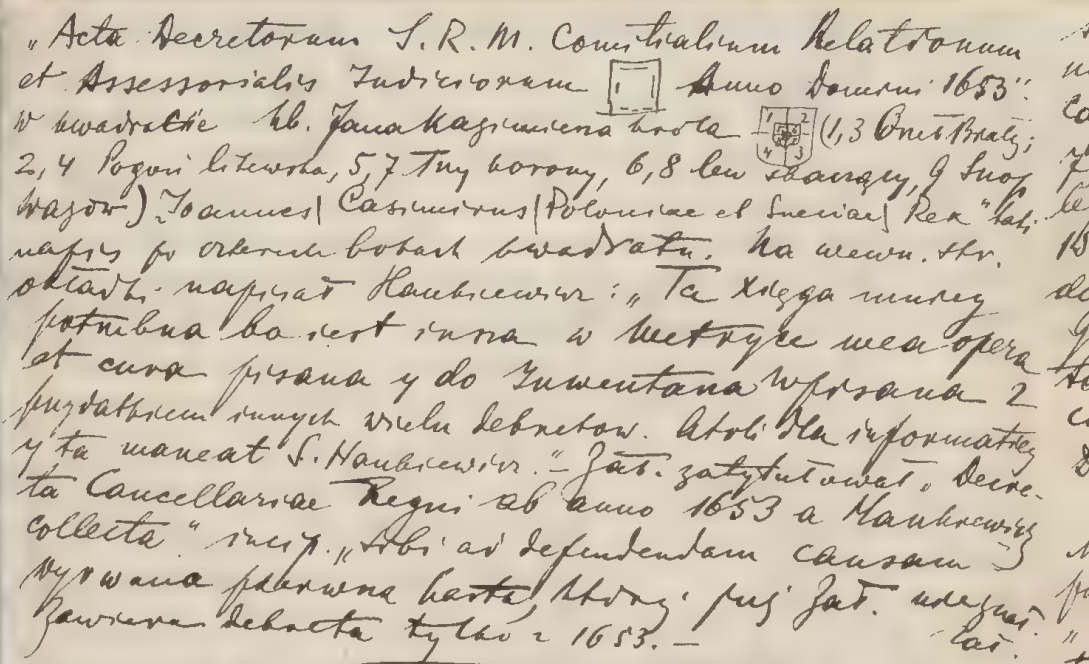 "Acta Decretorum S. R. M. Comitialium Relationum
et Assessorialis Iudiciorum Anno Domini 1653".
w kwadracie hb. Jana Kazimierza króla 1 2 4 3 (1,3 Orzeł Biały;
2,4 Pogoń litewska, 5,7 Trzy korony, 6,8 lew skaczący, 9 Snop
Wazów) "Joannes| Casimirus| Poloniae et Sueciae| Rex" taki
napis po czterech bokach kwadratu. Na wewn. str.
okładki napisał Hankiewicz: "Ta Xięga mniey
potrzebna bo iest insza w Metryce mea opera
et cura pisana y do Inwentarza wpisana z
przydatkiem innych wielu dekretow. Atoli dla informatiey
y ta maneat S. Hankiewicz." – Zał. zatytułował "Decre-
ta Cancellariae Regni ab anno 1653 a Hankiewicz
collecta" incip. ad defendendam causam –
wyrwana pierwsza karta, której już Zał.
Zawiera dekreta tylko z 1653. –